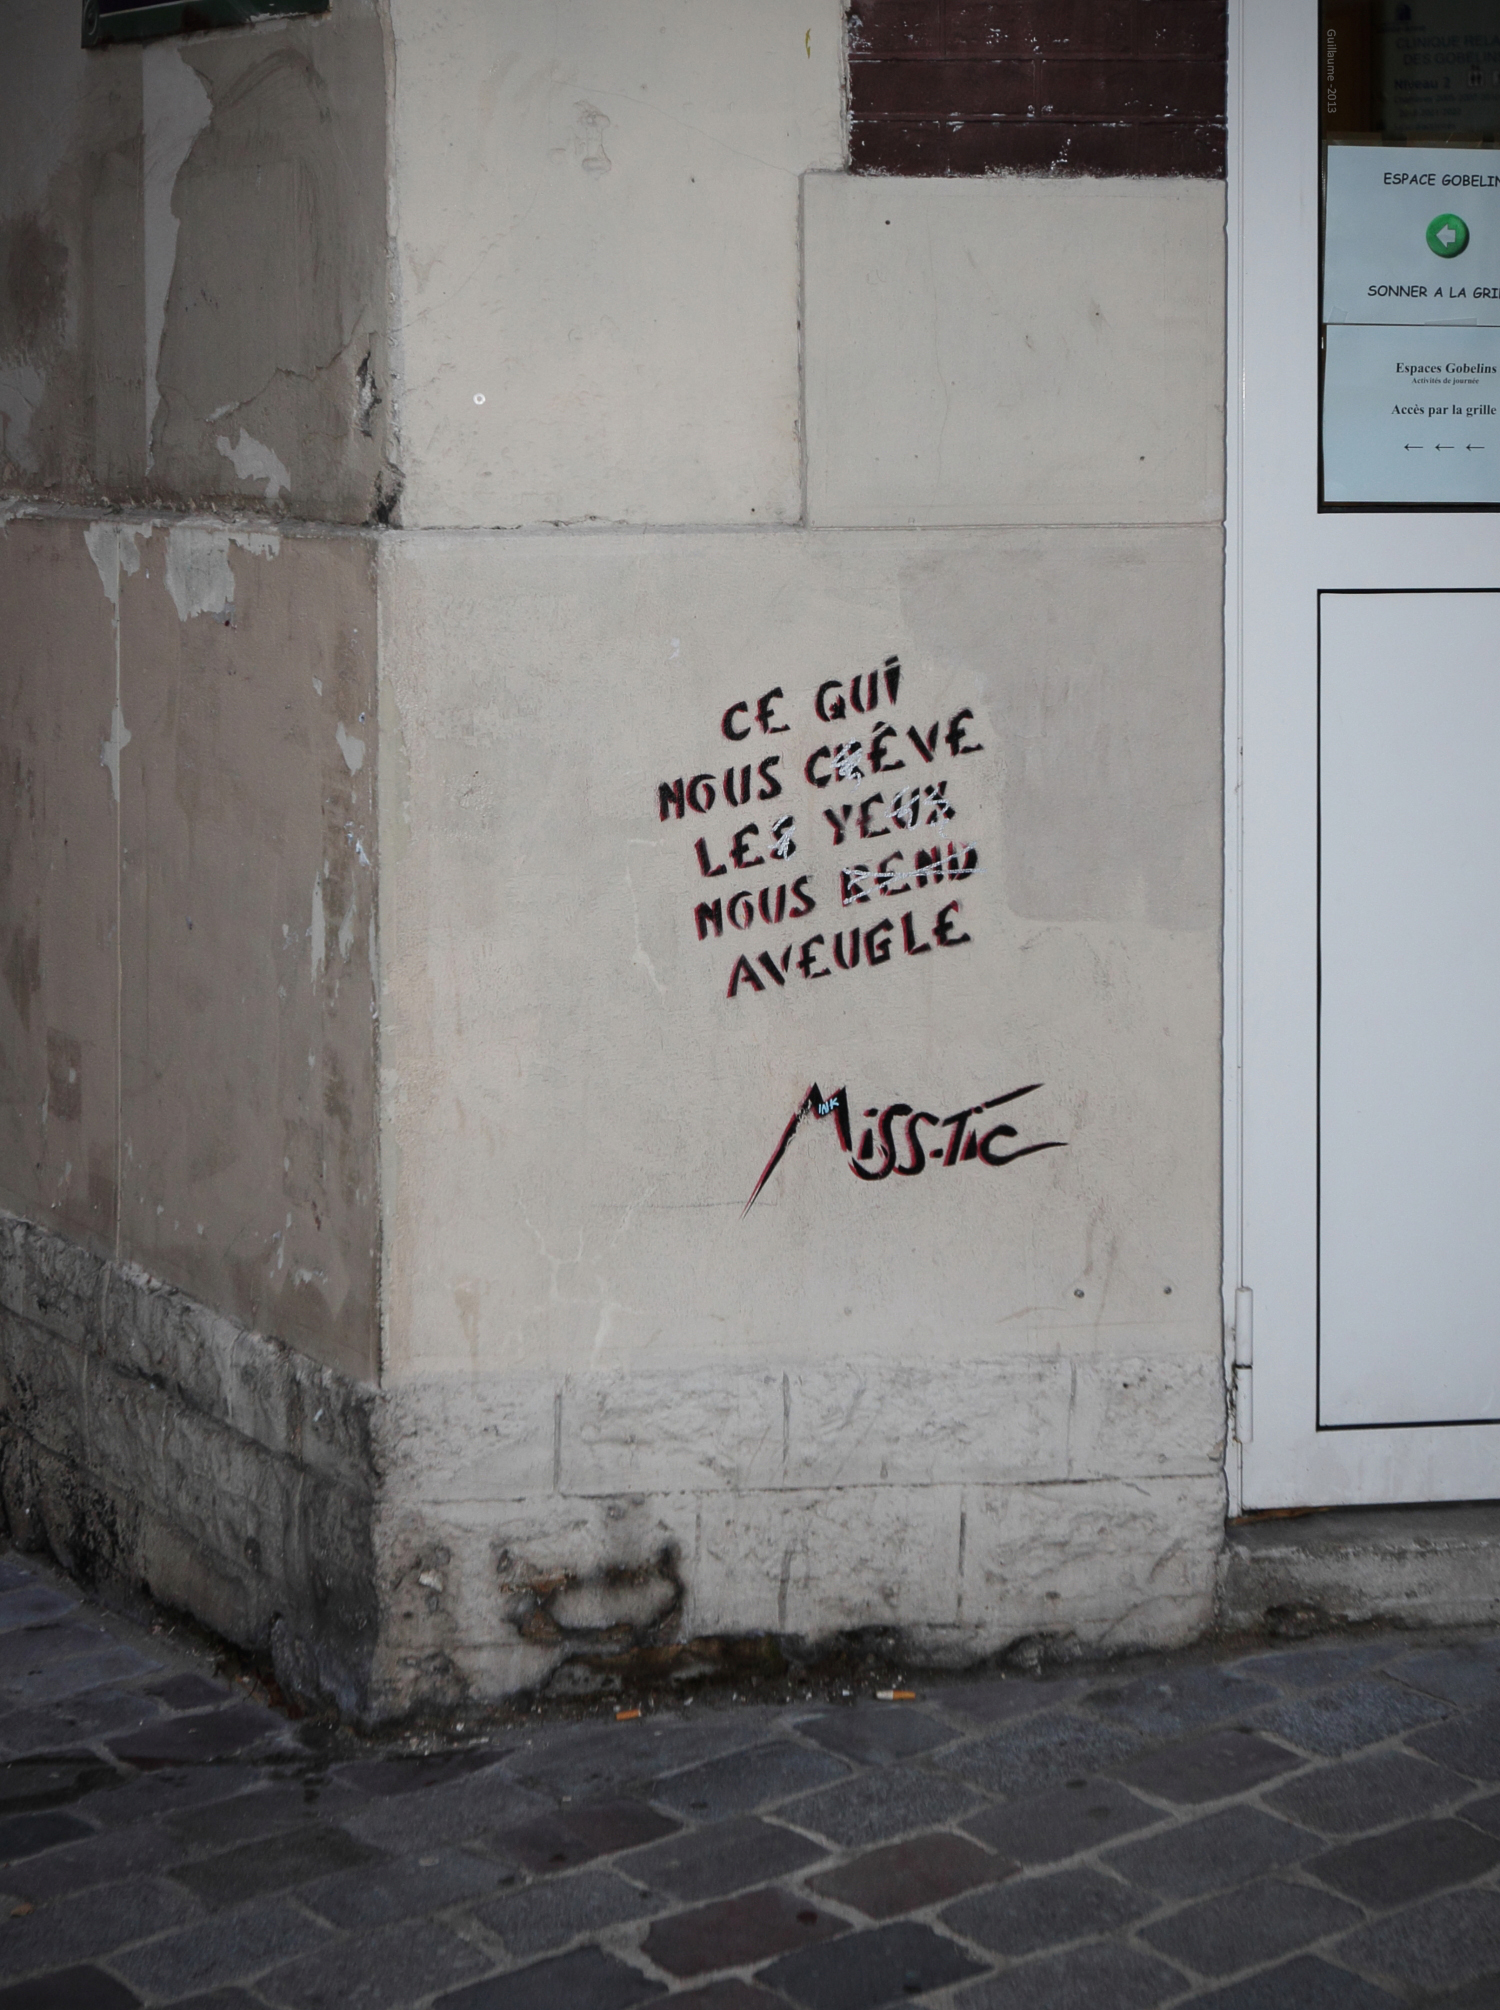 CE QUI
NOUS CRÊVE
LES YEUX
NOUS REND
AVEUGLE
MISS-TIC
INK
Guillaume-2013
Niveau 2
ESPACE GOBELIN
SONNER A LA
Espaces Gobelins
Activités de journée
Accès par la grille
← ← ←